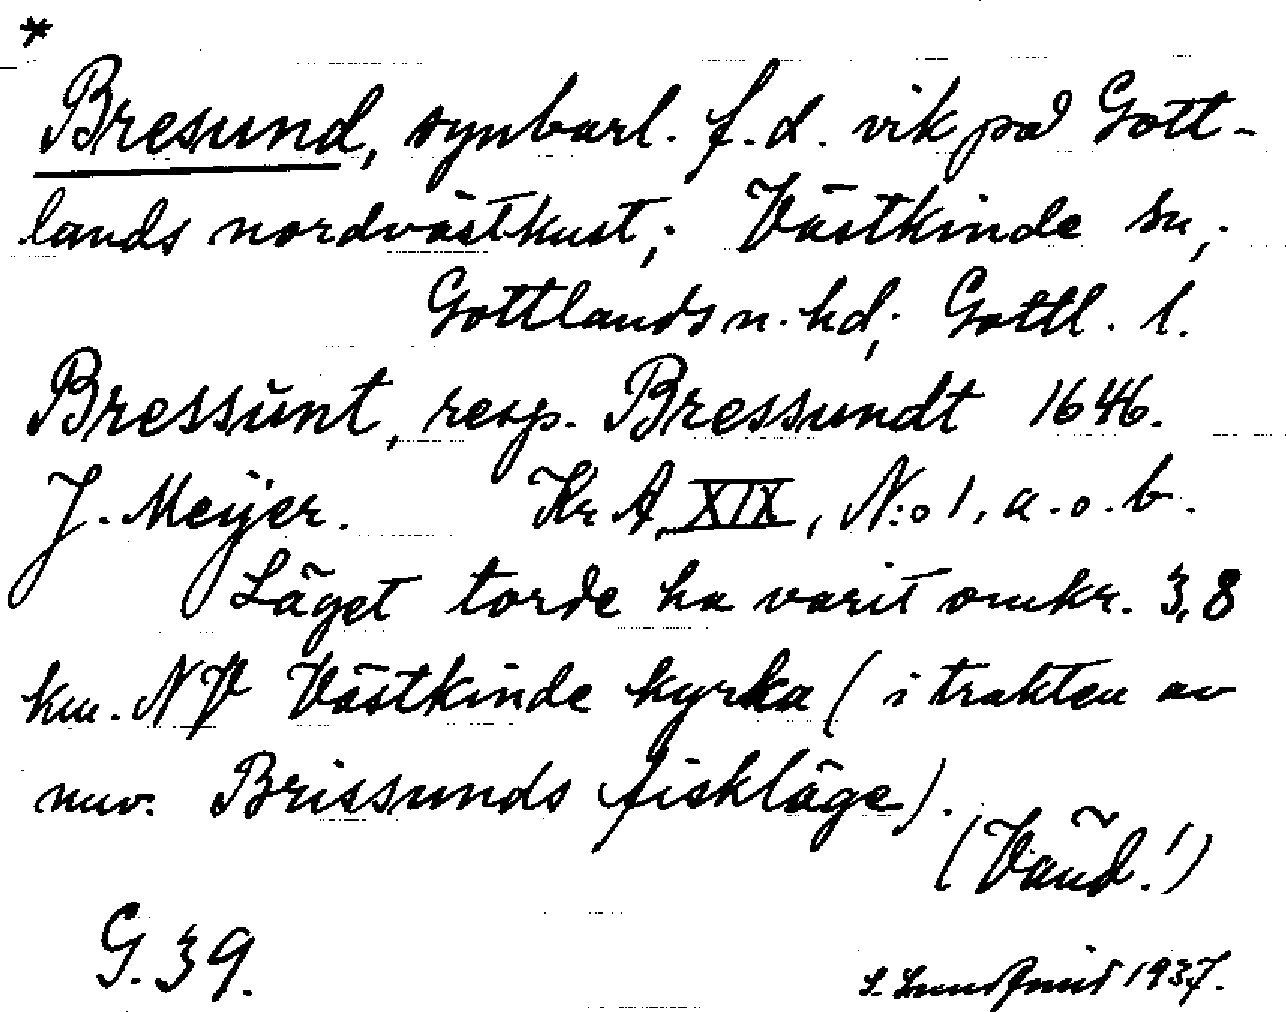 *
Bresund, synbarl. f.d. vik på Gott-
lands nordvästkust; Västkinde sn;
Gottlands n. hd; Gottl. l.
Bressŭnt, resp. Bressundt 1646.
J. Meijer. Kr A, XIX, N:o 1. a. o. b.
Läget torde ha varit omkr. 3,8
km. NV Västkinde kyrka (i trakten av
nuv. Brissunds fiskläge).
(Vänd!)
G. 39.
1937.